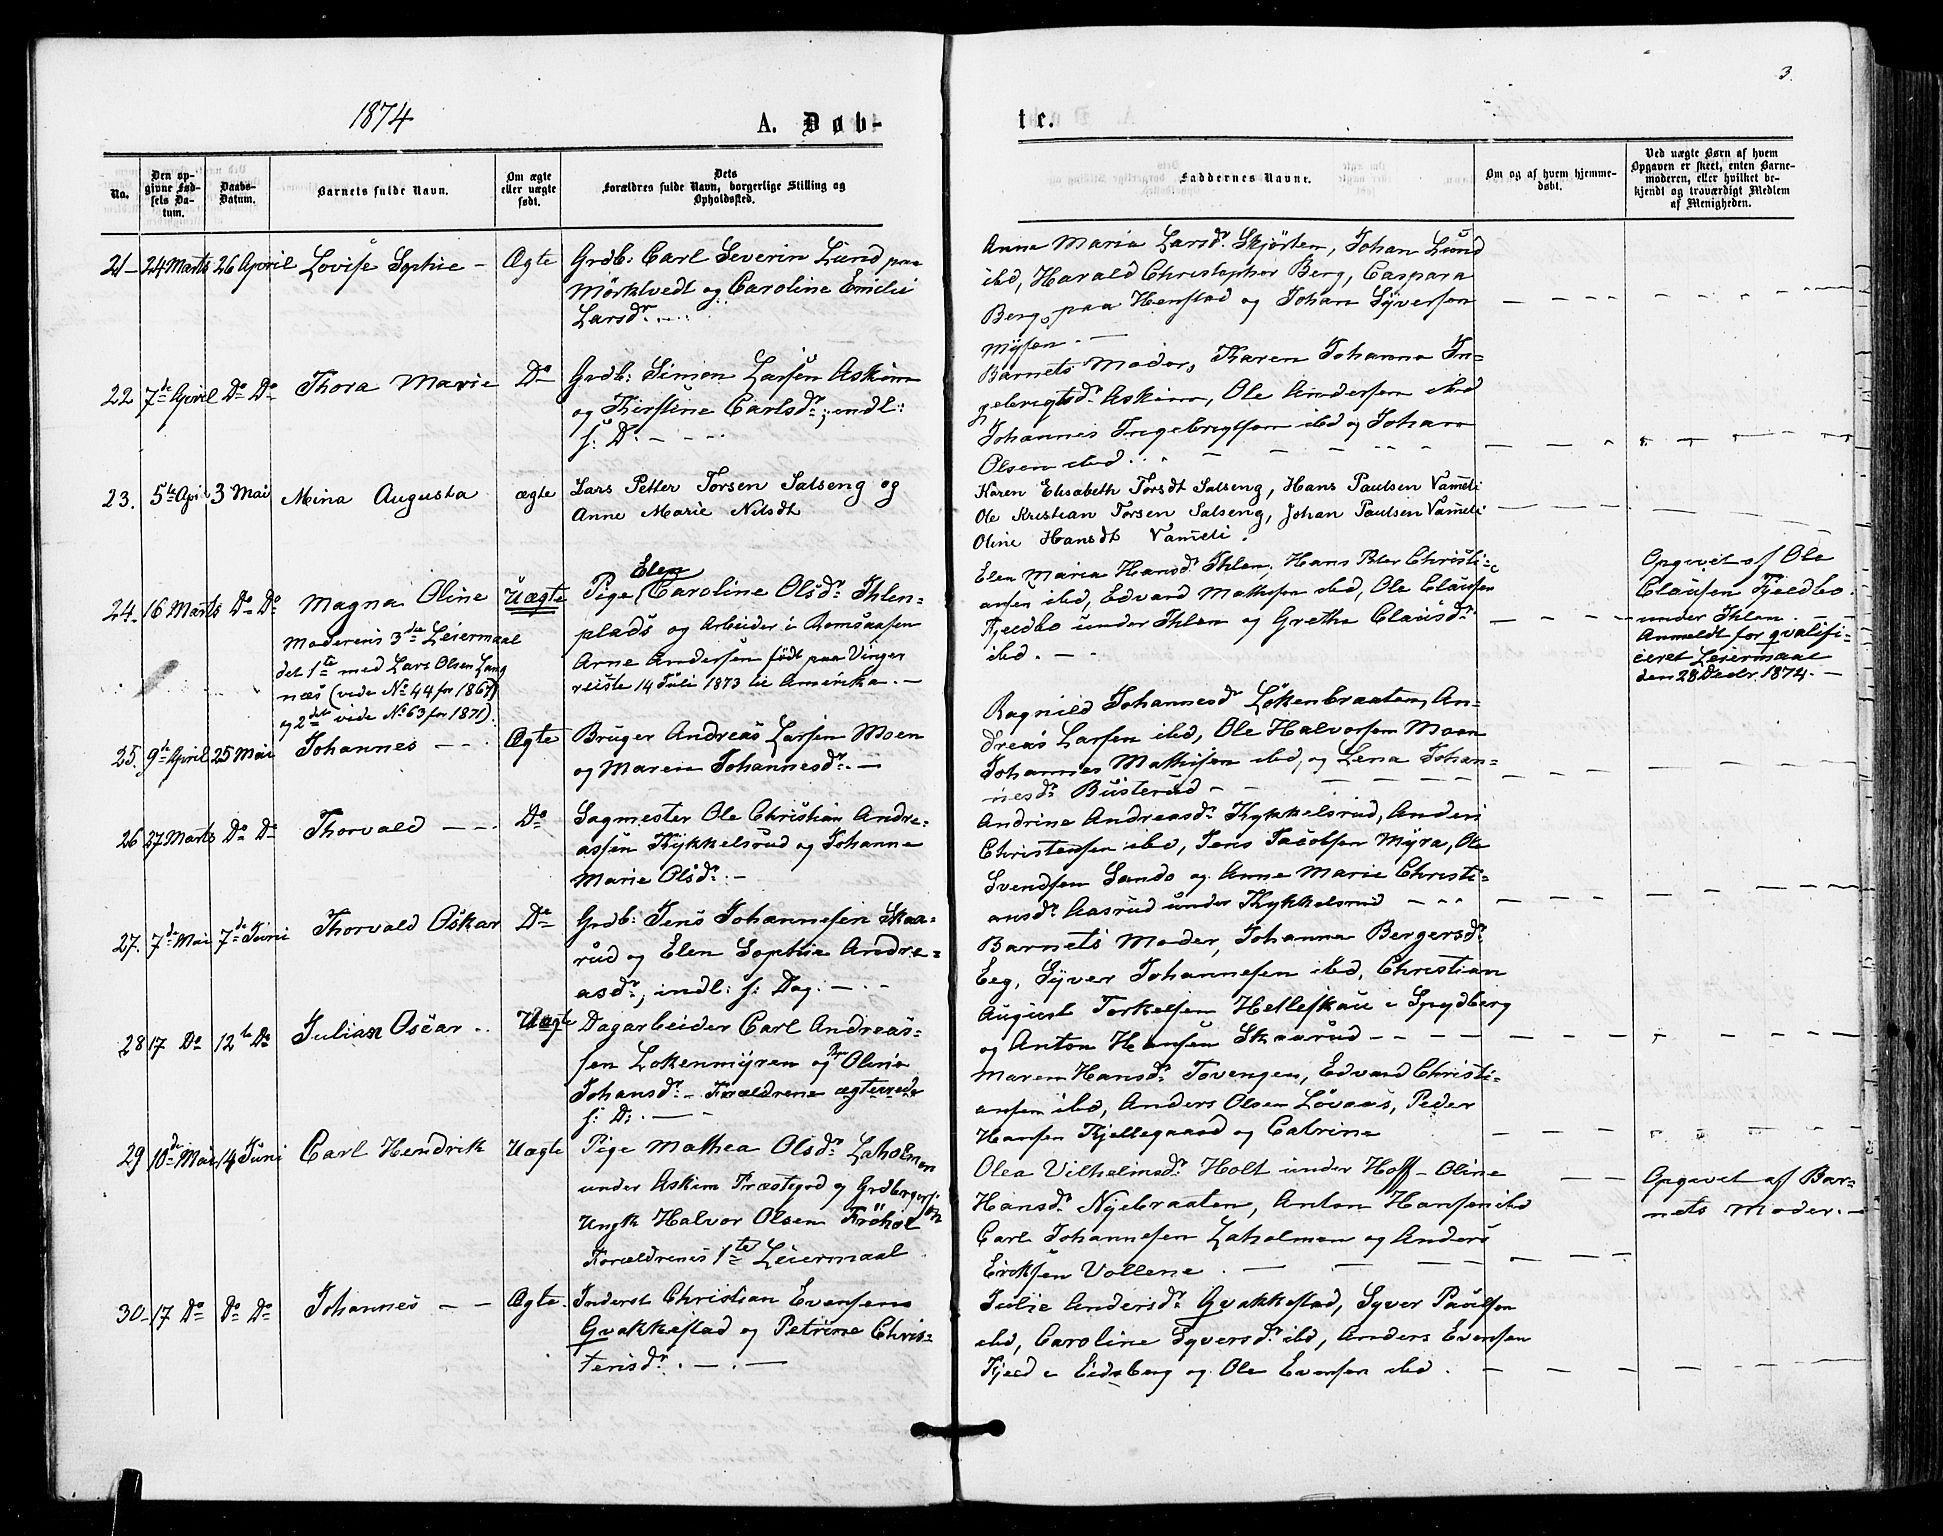 3.
1874
A. Døb-
te.
No.
Den op-
givne Fød-
sels Da-
tum.
Daabs-
Datum.
Barnets fulde Navn.
Om ægte
eller uægte
født.
Dets
Forældres fulde Navn, borgerlige Stilling og
Opholdssted.
Faddernes Navne.
Om og af hvem hjemme-
døbt.
Ved uægte Børn af hvem
Opgaven er skeet, enten Barne-
moderen, eller hvilket be-
kjendt og troværdigt Medlem
af Menigheden.
21 24 Marts 26 April Lovise Sophie - Ægte
Grdb: Carl Severin Lund paa
Mörktvedt og Caroline Emilie
Larsdr.
Anna Maria Larsdr. Skjörten, Johan Lund
ibd, Harald Christopher Berg, Caspara
Berg, paa Henstad og Johan Syversen
Mysen. -
22 7de April Do Do Thora Marie Do
Grdb: Simon Larsen Askim
og Kirstine Carlsdr; indl:
s: D. - - -
Barnets Moder, Karen Johanna In-
gebrigtsdr. Askim, Ole Andersen ibd
Johannes Ingebrigtsen ibd og Johan
Olsen ibd.
23. 5te Apr 3 Mai Mina Augusta ægte
Lars Petter Torsen Salseng og
Anne Marie Nilsdt
Karen Elisabeth Torsdt Salseng, Hans Paulsen Vammeli
Ole Kristian Torsen Salseng, Johan Paulsen Vammeli
Oline Hansdt Vammeli.
24. 16 Marts Do Do Magna Oline Uægte
Moderens 3die Leiermaal
det 1ste med Lars Olsen Lang
næs (vide No 44 for 1867)
og 2det vide No 63 for 1871).
Elen
Pige Caroline Olsdr. Ihlen-
plads og Arbeider i Romsaasen
Arne Andersen født paa Vinger
reiste 14 Juli 1873 til Amerika. -
Elen Maria Hansdr. Ihlen, Hans Peter Christi-
ansen ibd, Edvard Mathisen ibd, Ole Clausen
Fjeldbo under Ihlen og Grethe Clausdr.
ibd. - -
Opgivet af Ole
Clausen Fjeldbo
under Ihlen. -
Anmeldt for qvalifi-
ceret Leiermaal
den 28 Decbr. 1874. -
25. 9de April 25 Mai Johannes - - Ægte
Bruger Andreas Larsen Moen
og Maren Johannesdr. -
Ragnild Johannesd Lökenbraaten, An-
dreas Larsen ibd, Ole Halvorsen Moen
Johannes Mathisen ibd, og Lena Johan-
nesdr. Busterud - -
26 27 Marts Do Do Thorvald - - Do
Sagmester Ole Christian Andre-
assen Kykkelsrud og Johanne
Marie Olsdr. -
Andrine Andreasdr. Kykkelsrud, Anders
Christensen ibd, Jens Jacobsen Myra, Ole
Svendsen Sando og Anne Marie Christi-
ansdr. Aasrud under Kykkelsrud - - -
27. 7de Mai 7de Juni Thorvald Oskar Do
Grdb: Jens Johannesen Skaa-
rud og Elen Sophie Andre-
asdr., indl: s: Dag. - -
Barnets Moder, Johanna Bergersdr.
Eeg, Syver Johannesen ibd, Christian
August Torkelsen Helleskau i Spydberg
og Anton Hansen Skaarud - - - -
28 17 Do 12te Do Julian Oscar .. Uægte
Dagarbeider Carl Andreas-
sen Lökenmyren og Pige Oline
Johansdr. - Forældrene ægteviede
s: D. - -
Maren Hansdr. Tovengen, Edvard Christi-
ansen ibd, Anders Olsen Lövaas, Peder
Hansen Kjellegaard og Catrine
29 10de Mai 14 Juni Carl Hendrik Uægte
Pige Mathea Olsdr. Laholmen
under Askim Præstegrd og Grdbrgers.
Ungk Halvor Olsen Fröhol
Forældrenes 1ste Leiermaal
Olea Vilhelmsdr. Holt under Hoff - Oline
Hansdr. Nyebraaten, Anton Hansen ibd
Carl Johannesen Laholmen og Anders
Eriksen Vollene.
Opgivet af Bar-
nets Moder. -
30 17 Do Do Do Johannes - - Ægte.
Inderst Christian Evensen
Gvakkestad og Petrine Chris-
tensdr. - . -
Julie Andersdr. Gvakkestad, Syver Paulsen
ibd, Caroline Syversdr. ibd, Anders Evensen
Fjeld i Eidsberg og Ole Evensen ibd.